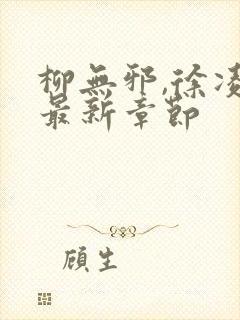 柳無邪,徐凌
最新章節
顧生